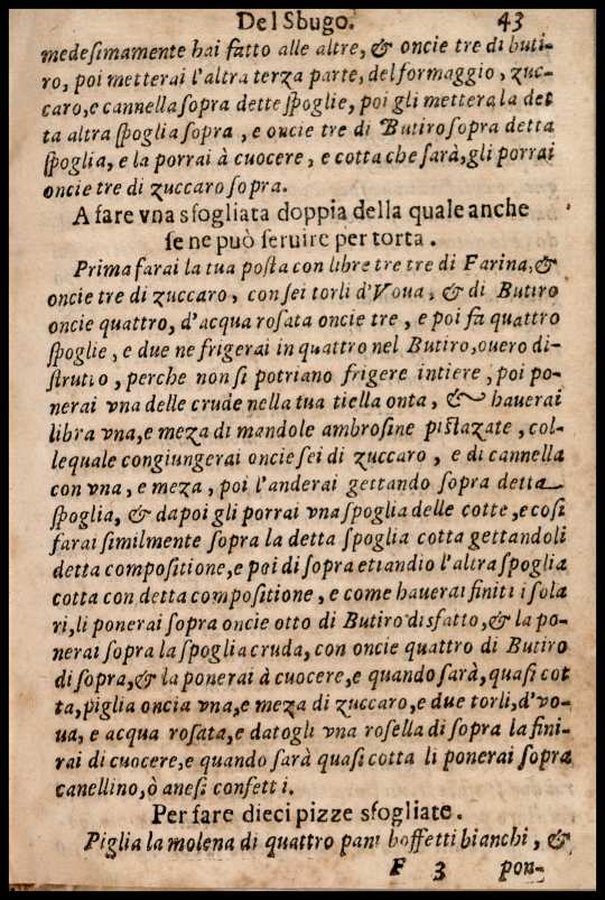 Del Sbugo. 43
medesimamente hai fatto alle altre, & oncie tre di buti-
ro, poi metterai l'altra terza parte, del formaggio, zuc-
caro, e cannella sopra dette spoglie, poi gli metterai la det
ta altra spoglia sopra, e oncie tre di Butiro sopra detta
spoglia, e la porrai à cuocere, e cotta che sarà, gli porrai
oncie tre di zuccaro sopra.
A fare vna sfogliata doppia della quale anche
se ne può seruire per torta.
Prima farai la tua posta con libre tre tre di Farina, &
oncie tre di zuccaro, con sei torli d'Voua, & di Butiro
oncie quattro, d'acqua rosata oncie tre, e poi fa quattro
spoglie, e due ne frigerai in quattro nel Butiro, ouero di-
strutto, perche non si potriano frigere intiere, poi po-
nerai vna delle crude nella tua tiella onta, & hauerai
libra vna, e meza di mandole ambrosine pistazate, col-
le quale congiungerai oncie sei di zuccaro, e di cannella
con vna, e meza, poi l'anderai gettando sopra detta
spoglia, & dapoi gli porrai vna spoglia delle cotte, e cosi
farai similmente sopra la detta spoglia cotta gettandoli
detta compositione, e poi di sopra etiandio l'altra spoglia
cotta con detta compositione, e come hauerai finiti i sola
ri, li ponerai sopra oncie otto di Butiro disfatto, & la po-
nerai sopra la spoglia cruda, con oncie quattro di Butiro
di sopra, & la ponerai à cuocere, e quando sarà, quasi cot
ta, piglia oncia vna, e meza di zuccaro, e due torli, d'vo-
ua, e acqua rosata, e datogli vna rosella di sopra la fini-
rai di cuocere, e quando sarà quasi cotta li ponerai sopra
canellino, ò anesi confetti.
Per fare dieci pizze sfogliate.
Piglia la molena di quattro pani boffetti bianchi, &
F 3 pon-